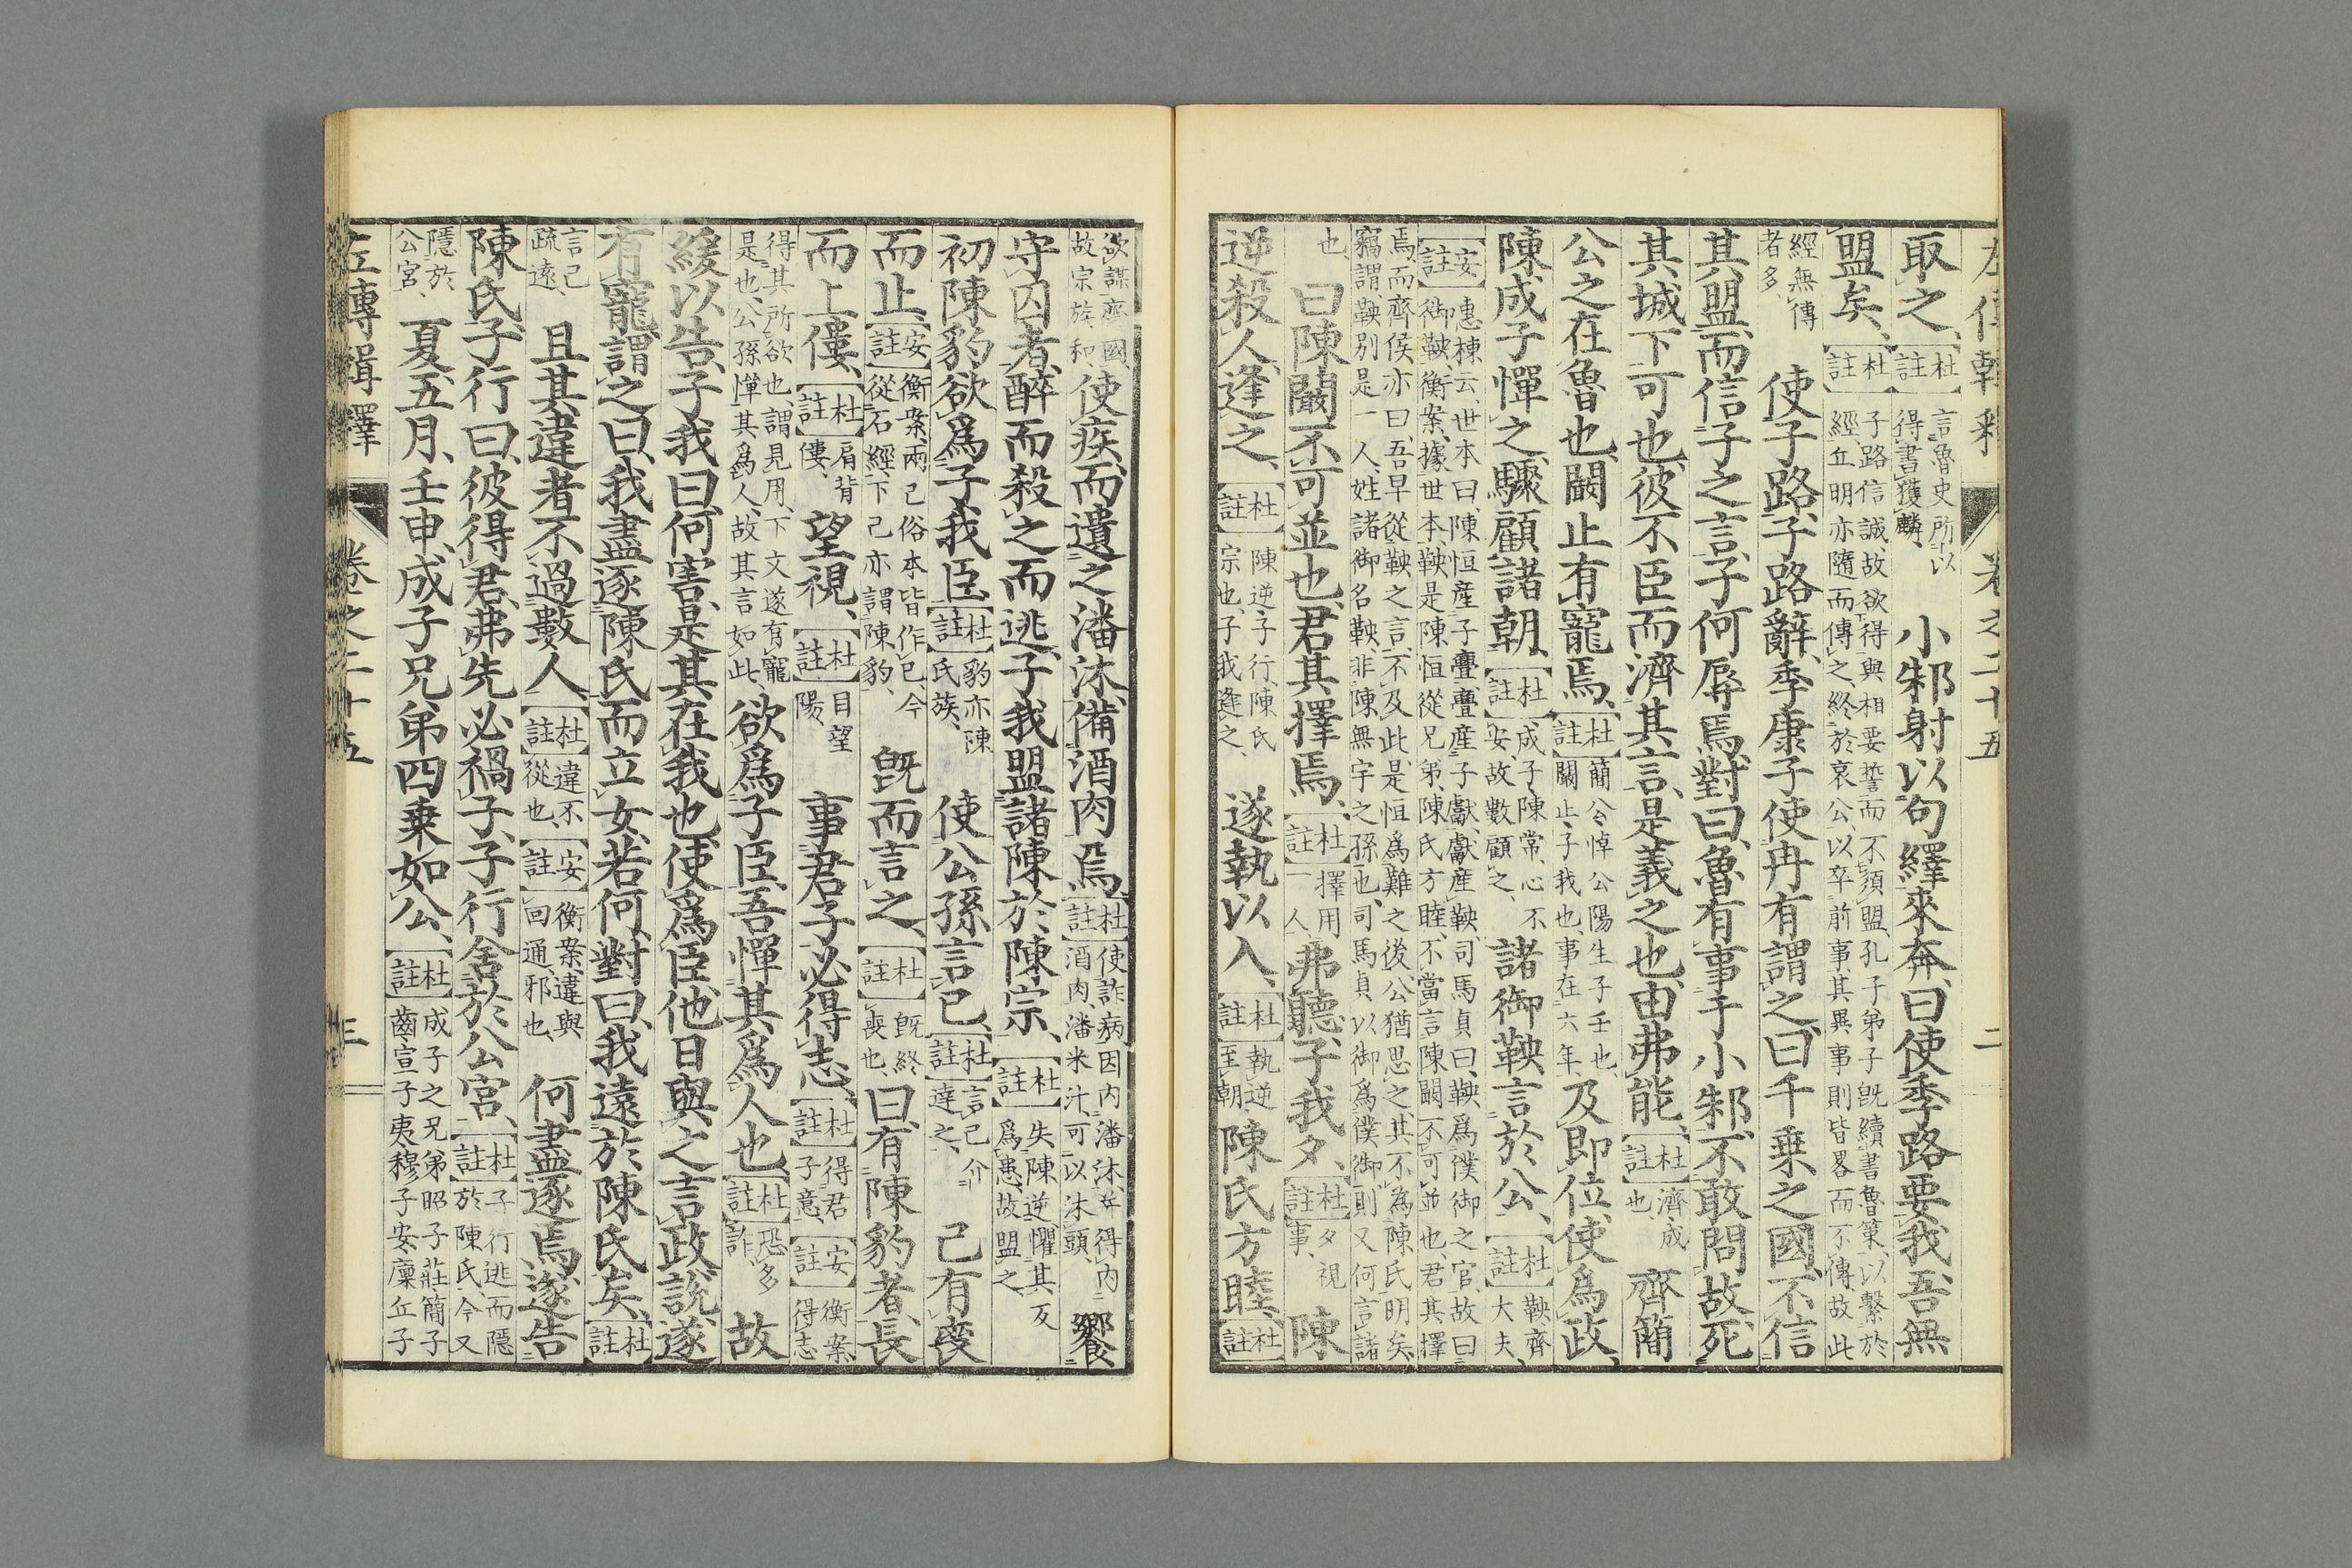 左傳輯釋 卷之二十五 二
取之、【杜註】言魯史所以得書獲麟、小邾射以句繹來奔、曰使季路要我、吾無
盟矣、【杜註】子路信誠、故欲得與相要誓而不須盟、孔子弟子既續書魯策、以繫於經、丘明亦隨而傳之、終於哀公、以卒前事、其異事則皆畧而不傳、故此
經無傳者多、使子路、子路辭、季康子使冉有謂之、曰千乗之國、不信
其盟、而信子之言、子何辱焉、對曰、魯有事于小邾、不敢問故、死
其城下可也、彼不臣而濟其言、是義之也、由弗能、【杜註】濟成也、齊簡
公之在魯也、闞止有寵焉、【杜註】簡公、悼公陽生子壬也、闞止、子我也、事在六年、及即位、使爲政、
陳成子憚之、驟顧諸朝、【杜註】成子、陳常、心不安、故數顧之、諸御鞅言於公、【杜註】鞅齊大夫、
【安註】惠棟云、世本曰、陳恒産子亹、亹産子獻、獻産鞅、司馬貞曰、鞅爲僕御之官、故曰御鞅、衡案、據世本、鞅是陳恒從兄弟、陳氏方睦、不當言陳闞不可並也、君其擇
焉、而齊侯亦曰、吾早從鞅之言、不及此、是恒爲難之後、公猶思之、其不爲陳氏明矣、竊謂、鞅別是一人、姓諸御名鞅、非陳無宇之孫也、司馬貞以御爲僕御、則又何言諸
也、曰陳闞不可並也、君其擇焉、【杜註】擇用一人、弗聽、子我夕、【杜註】夕視事、陳
逆殺人、逢之、【杜註】陳逆、子行、陳氏宗也、子我逢之、遂執以入、【杜註】執逆至朝、陳氏方睦、【杜註】
欲謀齊國、故宗族和、使疾、而遺之潘沐、備酒肉焉、【杜註】使詐病、因内潘沐、并得内酒肉、潘米汁、可以沐頭、饗
守囚者、醉而殺之而逃、子我盟諸陳於陳宗、【杜註】失陳逆、懼其反爲患、故盟之、
初陳豹欲爲子我臣、【杜註】豹亦陳氏族、使公孫言已、【杜註】言己介達之、已有喪
而止、【安註】衡案、兩己俗本皆作已、今從石經、下己亦謂陳豹、既而言之、【杜註】既終喪也、曰、有陳豹者、長
而上僂、【杜註】肩背僂、望視、【杜註】目望陽、事君子必得志、【杜註】得君子意、【安註】衡案、得志
得其所欲也、謂見用、下文遂有寵是也、公孫憚其爲人、故其言如此、欲爲子臣、吾憚其爲人也、【杜註】恐多詐、故
緩以告、子我曰、何害、是其在我也、使爲臣、他日與之言政、說、遂
有寵、謂之曰、我盡逐陳氏而立女、若何、對曰、我遠於陳氏矣、【杜註】
言己疏遠、且其違者不過數人、【杜註】違不從也、【安註】衡案、違與回通、邪也、何盡逐焉、遂告
陳氏、子行曰、彼得君、弗先必禍子、子行舍於公宮、【杜註】子行逃而隱於陳氏、今又
隱於公宮、夏五月、壬申、成子兄弟四乗如公、【杜註】成子之兄弟、昭子莊、簡子齒、宣子夷、穆子安、廩丘子
左傳輯釋 卷之二十五 三